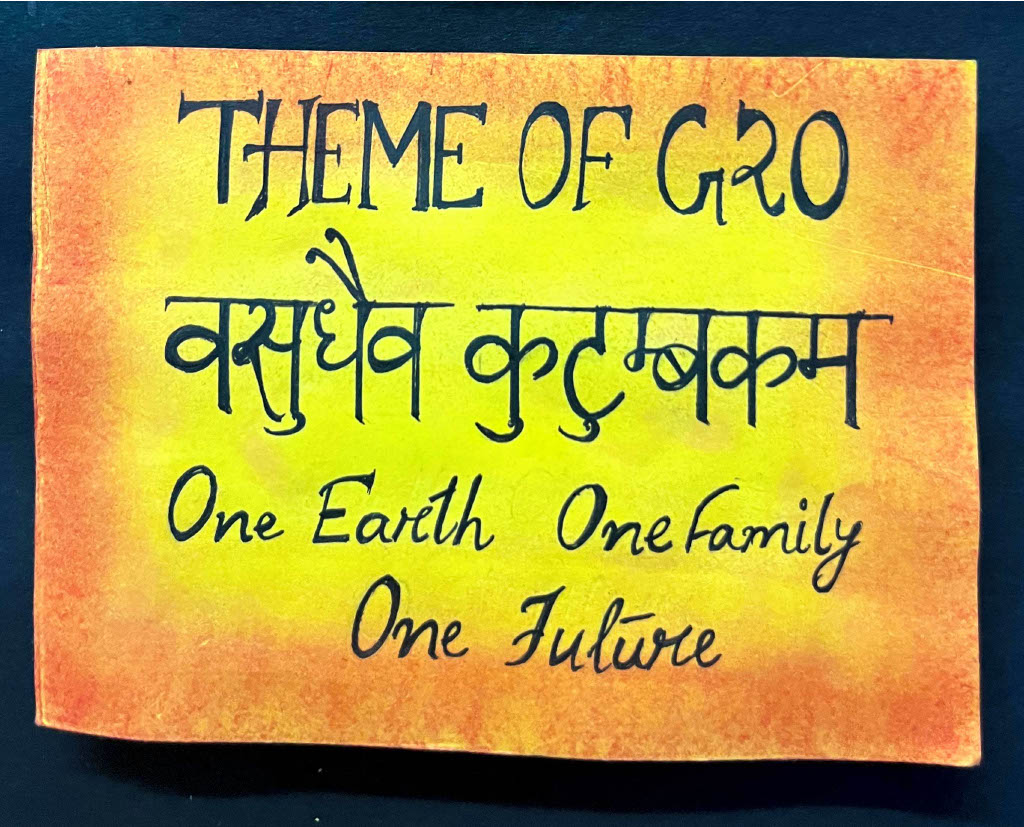 THEME OF G20
वसुधैव कुटुम्बकम
One Earth One Family
One Future